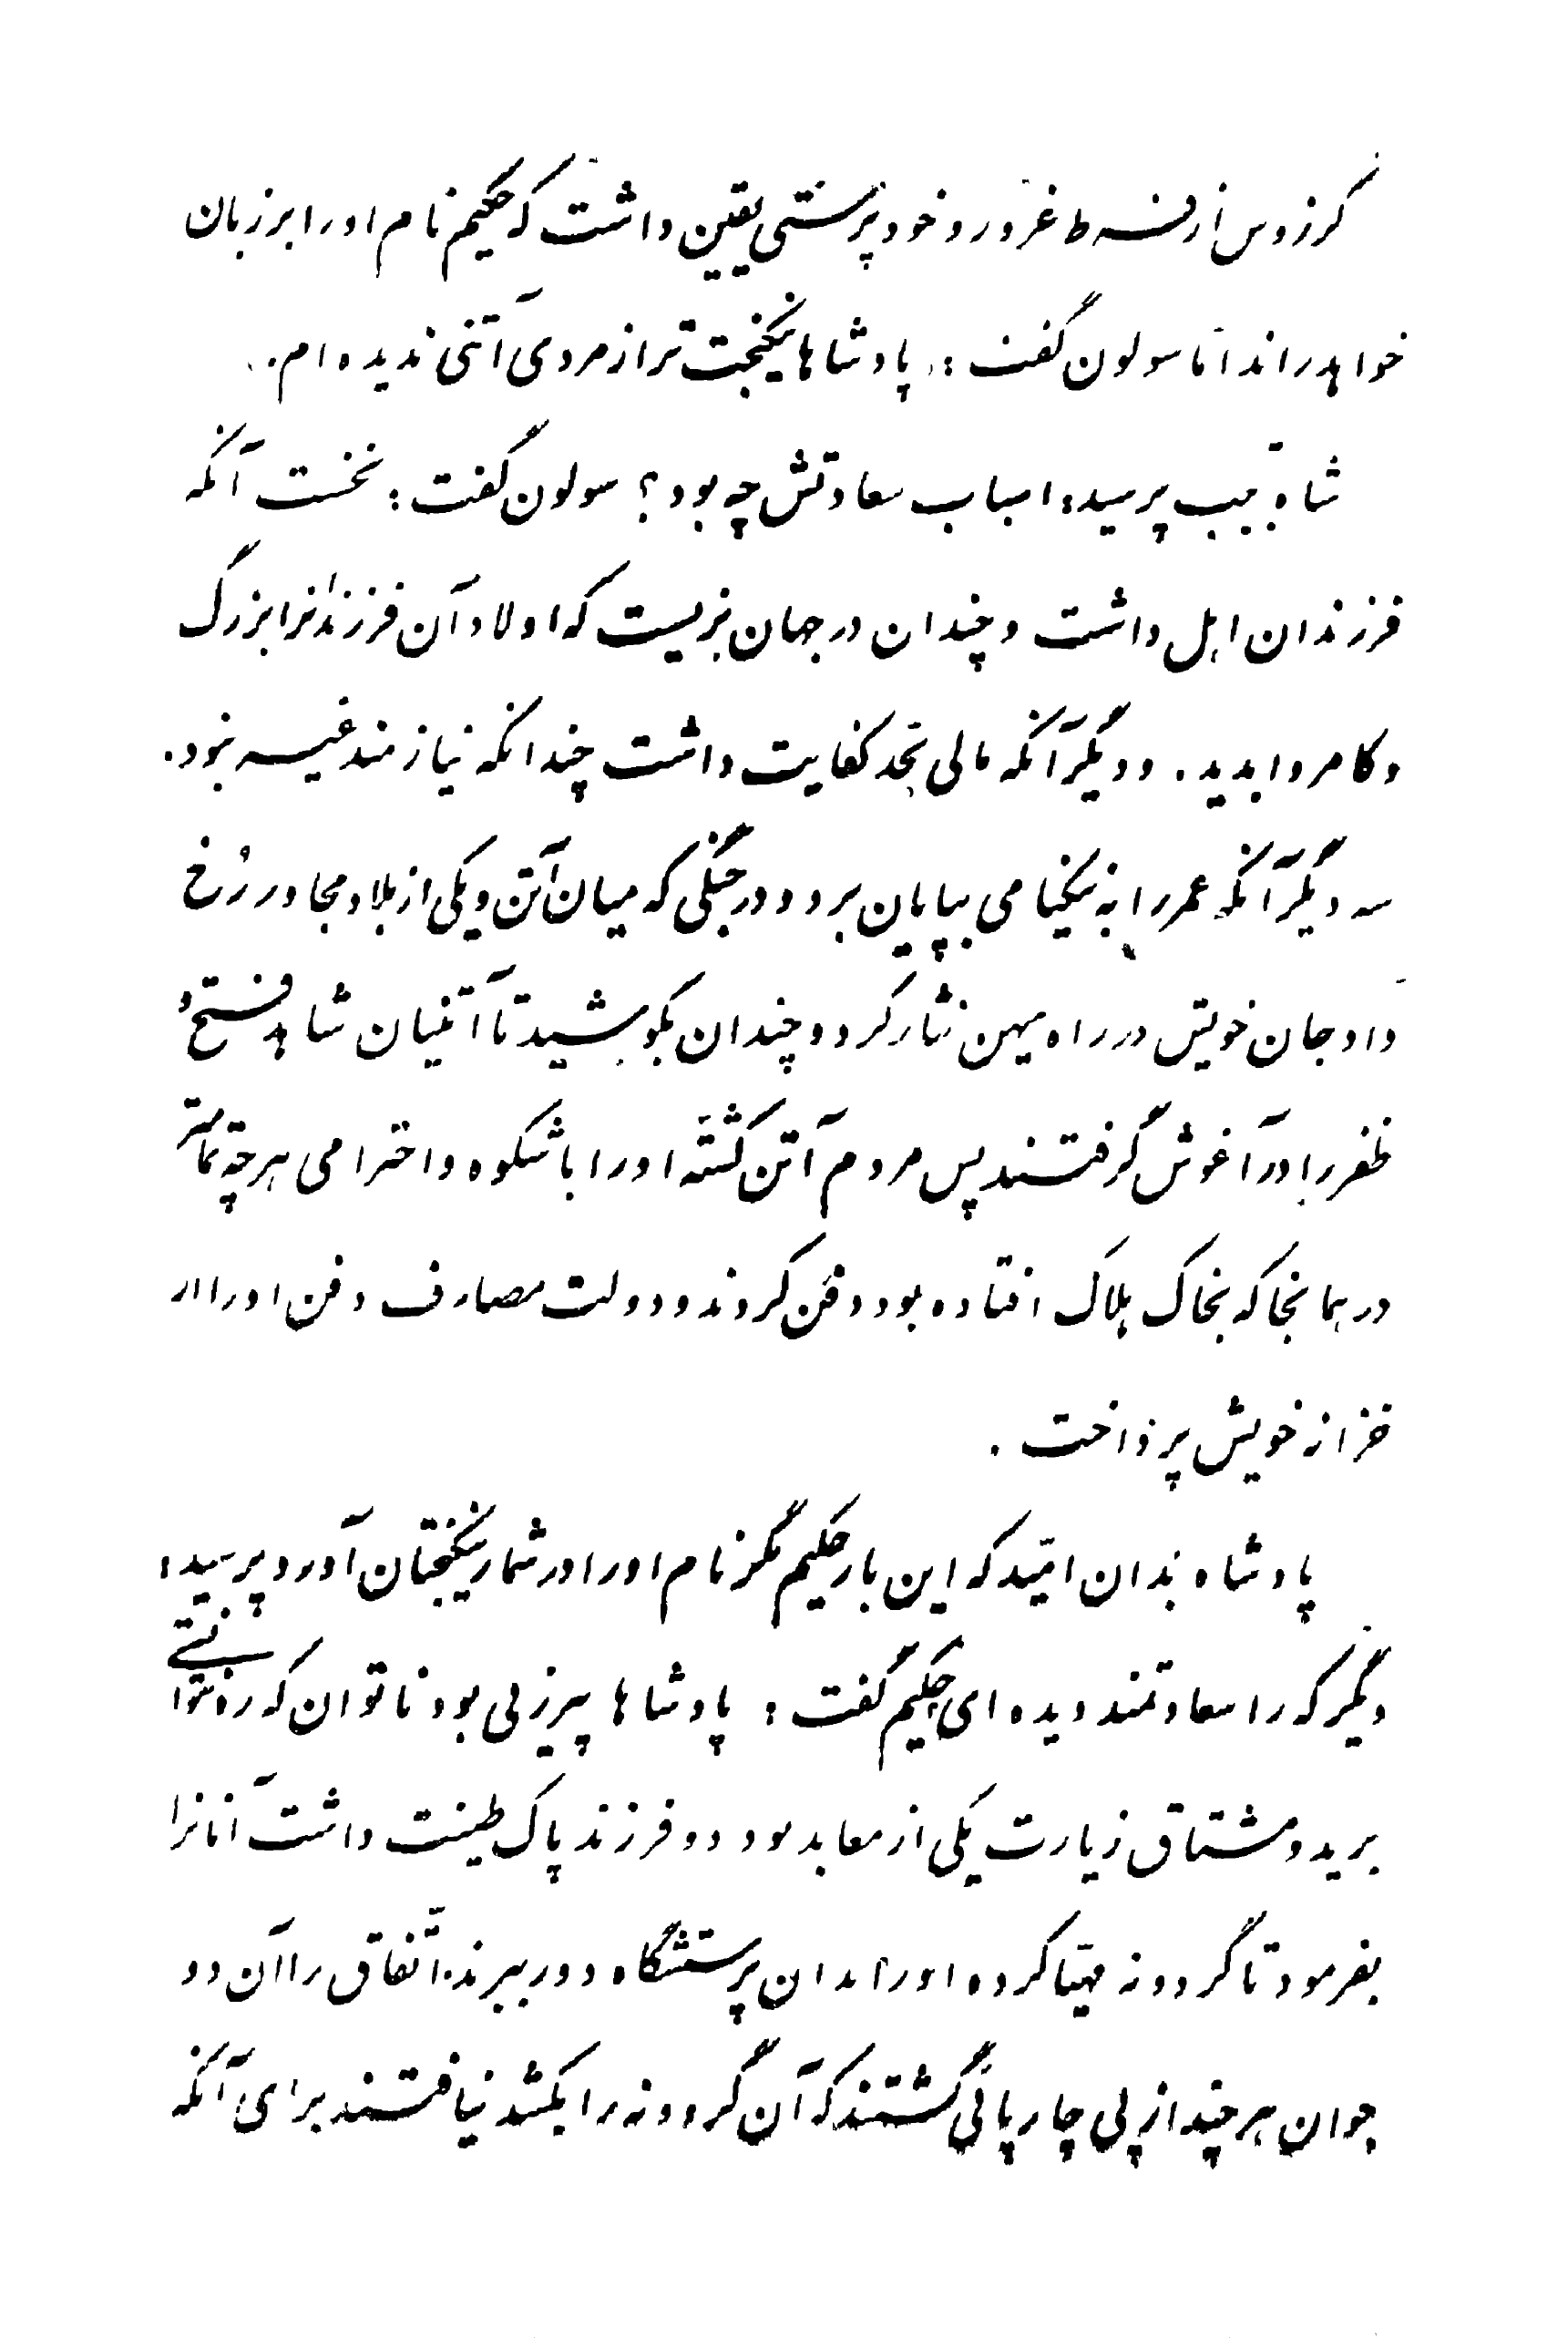 کرزوس از فرط غرور و خودپرستی یقین داشت که حکیم نام او را بر زبان
خواهد راند اما سولون گفت : پادشاها نیکبخت تر از مردی آتنی ندیده ام .
شاه بتعجب پرسید : اسباب سعادتش چه بود ؟ سولون گفت : نخست آنکه
فرزندان اهل داشت و چندان در جهان بزیست که اولاد آن فرزندانرا بزرگ
و کامروا بدید . و دیگر آنکه مالی بحد کفایت داشت چندانکه نیازمند غیر نبود .
سه دیگر آنکه عمر را به نیکنامی بپایان برد و در جنگی که میان آتن و یکی از بلاد مجاور رُخ
داد جان خویش در راه میهن نثار کرد و چندان بکوشید تا آتنیان شاهد فتح و
ظفر را در آغوش گرفتند پس مردم آتن کشته او را با شکوه و احترامی هر چه تمامتر
در همانجا که بخاک هلاک افتاده بود دفن کردند و دولت مصارف دفن او را از
خزانه خویش پرداخت .
پادشاه بدان امّید که این بار حکیم مگر نام او را در شمار نیکبختان آورد پرسید :
دیگر که را سعادتمند دیده ای حکیم گفت : پادشاها پیرزنی بود ناتوان که ره نتوانستی
برید و مشتاق زیارت یکی از معابد بود دو فرزند پاک طینت داشت آنانرا
بفرمود تا گردونه مهیّا کرده او را بدان پرستشگاه دور ببرند اتّفاق را آن دو
جوان هر چند از پی چارپائی گشتند که آن گردونه را بکشد نیافتند برای آنکه